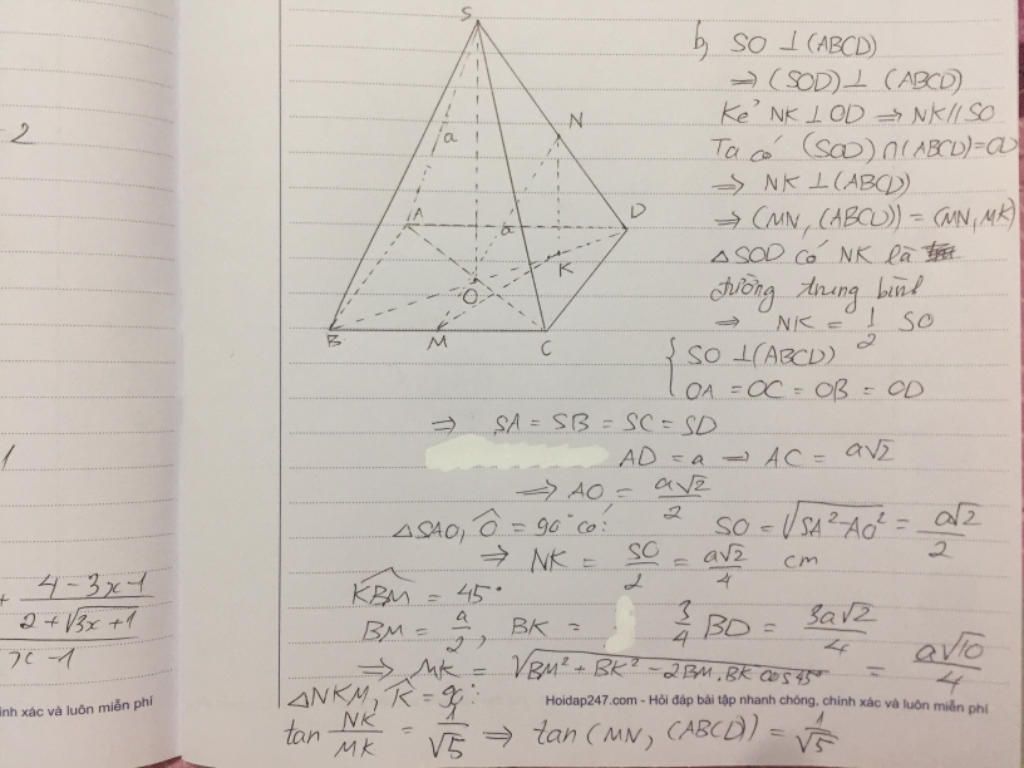 - 2
1
+ \frac{4 - 3x - 1}{2 + \sqrt{3x + 1}}
x - 1
ính xác và luôn miễn phí
S
a
N
A
a
D
K
O
B M C
b, SO ⊥ (ABCD)
⇒ (SOD) ⊥ (ABCD)
Kẻ NK ⊥ OD ⇒ NK // SO
Ta có (SOD) ∩ (ABCD) = OD
⇒ NK ⊥ (ABCD)
⇒ (MN, (ABCD)) = (MN, MK)
△SOD có NK là
đường trung bình
⇒ NK = \frac{1}{2} SO
{ SO ⊥ (ABCD)
OA = OC = OB = OD
⇒ SA = SB = SC = SD
AD = a → AC = a√2
⇒ AO = \frac{a√2}{2}
△SAO, \hat{O} = 90° có: SO = \sqrt{SA² - AO²} = \frac{a√2}{2}
⇒ NK = \frac{SO}{2} = \frac{a√2}{4} cm
\widehat{KBM} = 45°
BM = \frac{a}{2}, BK = \frac{3}{4} BD = \frac{3a√2}{4}
⇒ MK = \sqrt{BM² + BK² - 2BM.BK cos45°} = \frac{a√10}{4}
△NKM, \hat{K} = 90°:
Hoidap247.com - Hỏi đáp bài tập nhanh chóng, chính xác và luôn miễn phí
tan \frac{NK}{MK} = \frac{1}{√5} ⇒ tan (MN, (ABCD)) = \frac{1}{√5}